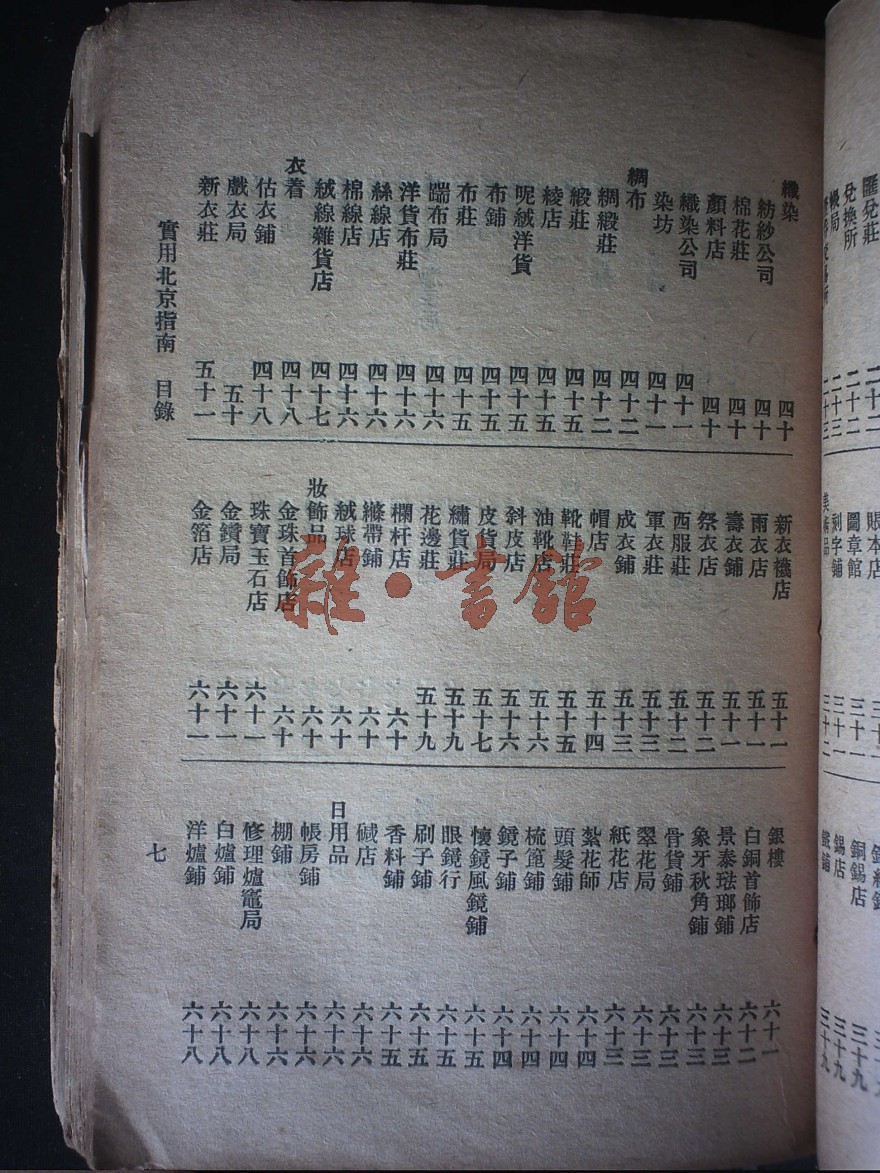 匯兌莊
兌換所 二十二
帳局 二十三
賬本店
圖章館 三十一
刻字鋪 三十一
美術品 三十二
銅錫店 三十九
錫店 三十九
織染 四十
紡紗公司 四十
棉花莊 四十
顏料店 四十
織染公司 四十一
染坊 四十一
綢布 四十二
綢緞莊 四十二
緞莊 四十五
綾店 四十五
呢絨洋貨 四十五
布鋪 四十五
布莊 四十五
踹布局 四十六
洋貨布莊 四十六
絲線店 四十六
棉線店 四十六
絨線雜貨店 四十七
衣着 四十八
估衣鋪 四十八
戲衣局 五十
新衣莊 五十一
新衣店 五十一
雨衣店 五十一
壽衣鋪 五十一
祭衣店 五十二
西服莊 五十二
軍衣莊 五十三
成衣鋪 五十三
帽店 五十四
靴鞋莊 五十五
油靴店 五十六
斜皮店 五十六
皮貨局 五十七
繡貨莊 五十九
花邊莊 五十九
欄杆店 六十
縧帶鋪 六十
絨球店 六十
妝飾品 六十
金珠首飾店 六十
珠寶玉石店 六十一
金鑽局 六十一
金箔店 六十一
銀樓 六十一
白銅首飾店 六十二
景泰琺瑯鋪 六十三
象牙秋角鋪 六十三
骨貨鋪 六十三
翠花局 六十三
紙花店 六十三
紮花師 六十四
頭髮鋪 六十四
梳篦鋪 六十四
鏡子鋪 六十四
懷鏡風鏡鋪 六十五
眼鏡行 六十五
刷子鋪 六十五
香料鋪 六十五
碱店 六十六
日用品 六十六
帳房鋪 六十六
棚鋪 六十六
修理爐竈局 六十八
白爐鋪 六十八
洋爐鋪 六十八
實用北京指南 目錄
七
雜·書館